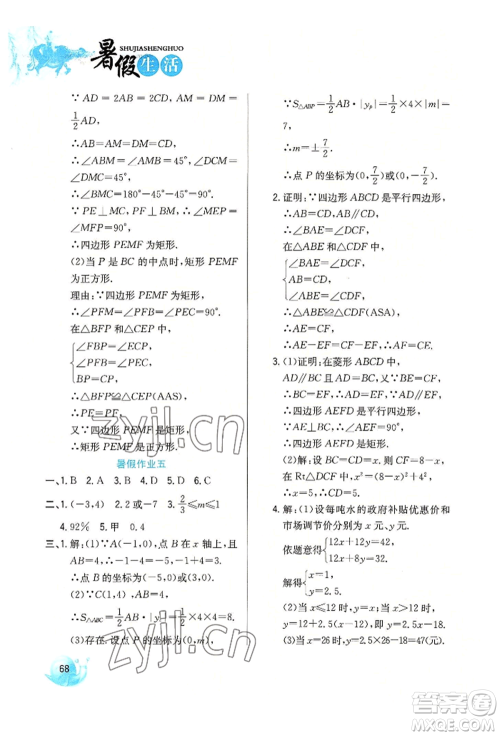 SHUJIASHENGHUO
暑假生活
∵AD=2AB=2CD,AM=MD=
1/2 AD,
∴AB=AM=DM=CD.
∴∠ABM=∠AMB=45°,∠DCM=
∠DMC=45°.
∴∠BMC=180°-45°-45°=90°.
∵PE⊥MC,PF⊥BM,∴∠MEP=
∠MFP=90°.
∴四边形PEMF为矩形.
(2)当P是BC的中点时,矩形PEMF
为正方形.
理由:∵四边形PEMF为矩形,
∴∠PFM=∠PFB=∠PEC=90°.
在△BFP和△CEP中,
{∠FBP=∠ECP,
∠BFP=∠CEP,
BP=CP,
∴△BFP≌△CEP(AAS).
∴PE=PF.
又∵四边形PEMF是矩形,
∴矩形PEMF为正方形.
暑假作业五
一、1.B 2.A 3.D 4.C 5.D 6.C
二、1.(-3,4) 2.2或-7 3.2/3≤m≤1
4.92% 5.甲 0.4
三、1.解:(1)∵A(-1,0),点B在x轴上,且
AB=4,
∴点B的坐标为(-5,0)或(3,0).
(2)∵C(1,4),AB=4,
∴S△ABC=1/2 AB·|yC|=1/2×4×4=8.
(3)存在.设点P的坐标为(0,m),
∵S△ABP=1/2 AB·|yP|=1/2×4×|m|=
7,
∴m=±7/2.
∴点P的坐标为(0,7/2)或(0,-7/2).
2.证明:∵四边形ABCD是平行四边形,
∴AB=CD,∠BAE=∠DCF.
在△ABE和△CDF中,
{∠BAE=∠DCF,
AB=CD,
∠ABE=∠CDF,
∴△ABE≌△CDF(ASA).
∴AE=CF.
∴AE-EF=CF-EF,∴AF=CE.
3.(1)证明:∵在菱形ABCD中,
AD∥BC且AD=BC,
∴BE=CF,∴BC=EF.
∴AD=EF.∵AD∥EF,
∴四边形AEFD是平行四边形.
∵AE⊥BC,∴∠AEF=90°.
∴四边形AEFD是矩形.
(2)解:设BC=CD=x,则CF=8-x,
在Rt△DCF中,∵x²=(8-x)²+4²,
∴x=5.∴CD=5.
4.解:(1)设每吨水的政府补贴优惠价和
市场调节价分别为x元,y元.
依题意得{12x+12y=42,
10x+8y=32.
解得{x=1,
y=2.5.
(2)当x≤12时,y=x;当x>12时,
y=12+2.5(x-12)=2.5x-18.
(3)当x=26时,y=2.5×26-18=47(元).
68
zyjl.cn
zyjl.cn
答案圈
MXQE.COM